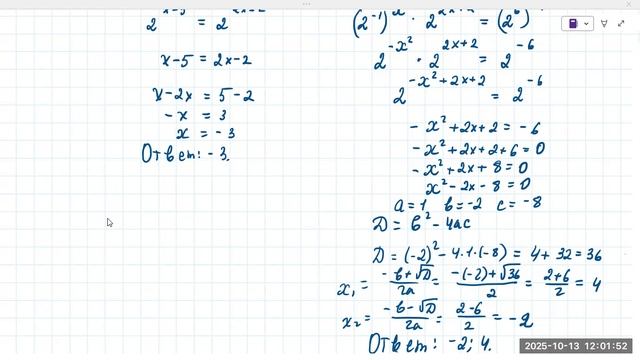 2^{x-5} = 2^{2x-2}
x-5 = 2x-2
x-2x = 5-2
-x = 3
x = -3
Ответ: -3.
(2^{-1})^{x^2} · 2^{2x+2} = (2^6)
2^{-x^2} · 2^{2x+2} = 2^{-6}
2^{-x^2+2x+2} = 2^{-6}
-x^2+2x+2 = -6
-x^2+2x+2+6 = 0
-x^2+2x+8 = 0
x^2-2x-8 = 0
a=1 b=-2 c=-8
D = b^2 - 4ac
D = (-2)^2 - 4·1·(-8) = 4+32 = 36
x_1 = \frac{-b+√D}{2a} = \frac{-(-2)+√36}{2} = \frac{2+6}{2} = 4
x_2 = \frac{-b-√D}{2a} = \frac{2-6}{2} = -2
Ответ: -2; 4.
2025-10-13 12:01:52